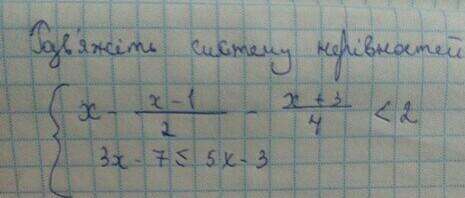 Розв'яжіть систему нерівностей
{ x - \frac{x-1}{2} - \frac{x+3}{4} < 2
3x - 7 ≤ 5x - 3